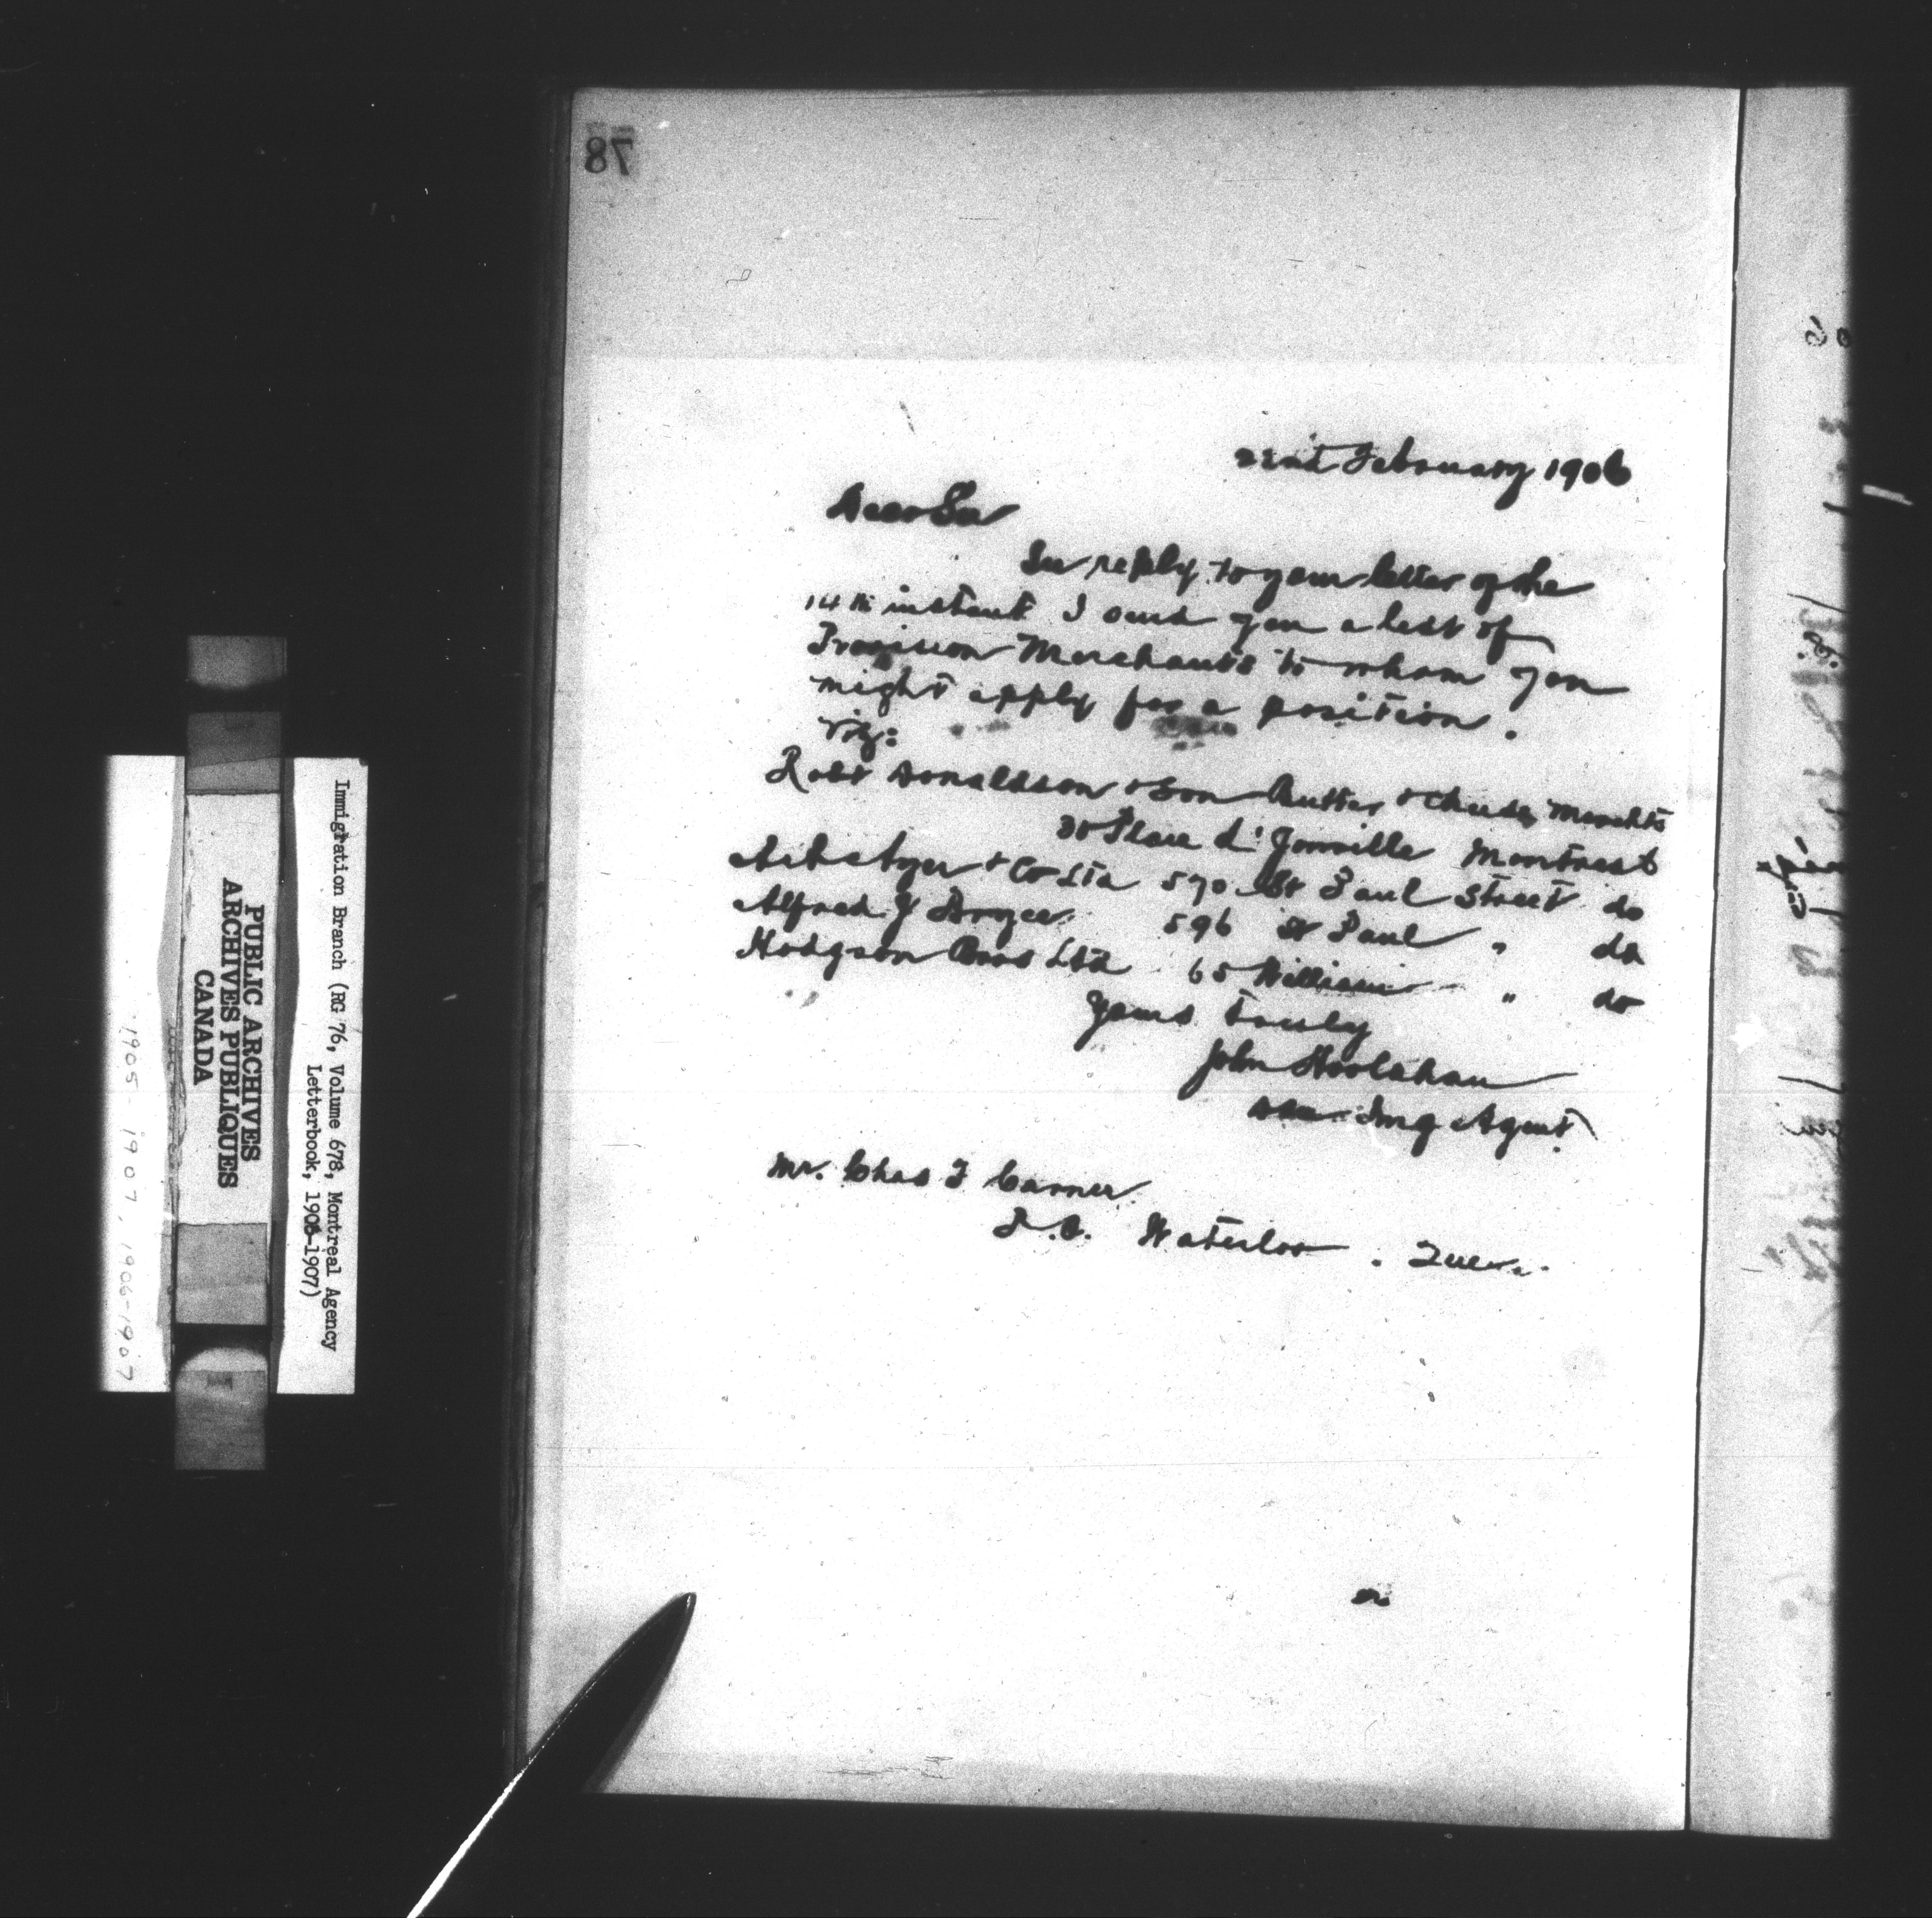 78
22nd February 1906
Dear Sir
In reply to your letter of the
14th instant I send you a list of
Provision Merchants to whom you
might apply for a position.
Viz:
Robt Donaldson & Son Butter & Cheese Merchts
30 Place d'Youville Montreal
A. A. Ayer & Co Ltd 570 St Paul Street do
Alfred J Bryce 596 St Paul " do
Hodgson Bros Ltd 65 William " do
Yours truly
John Hoolahan
Dom. Img Agent.
Mr. Chas F Carner
P.O. Waterloo. Que.
Immigration Branch (RG 76, Volume 678, Montreal Agency
Letterbook, 1906-1907)
PUBLIC ARCHIVES
ARCHIVES PUBLIQUES
CANADA
1905-1907, 1906-1907